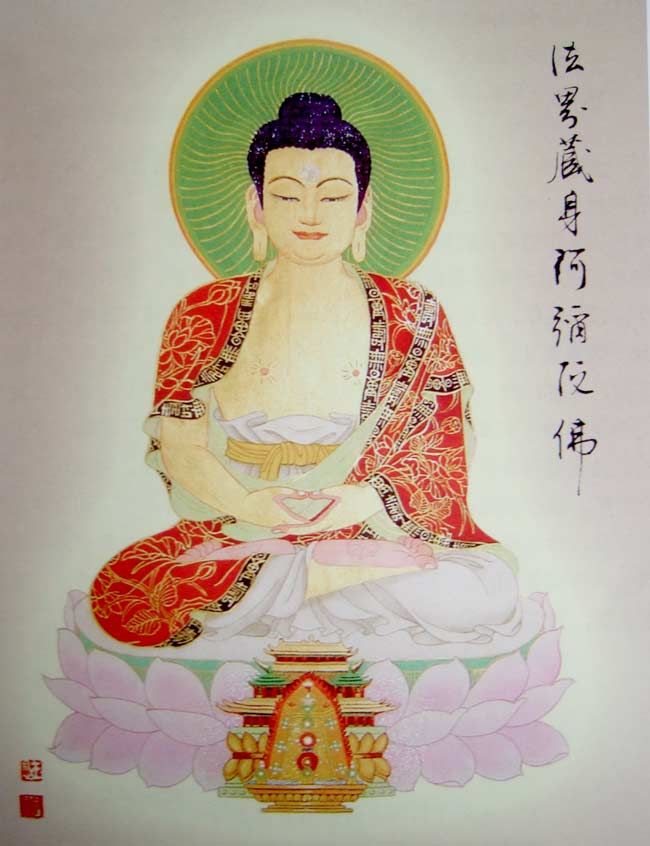 法界藏身阿彌陀佛